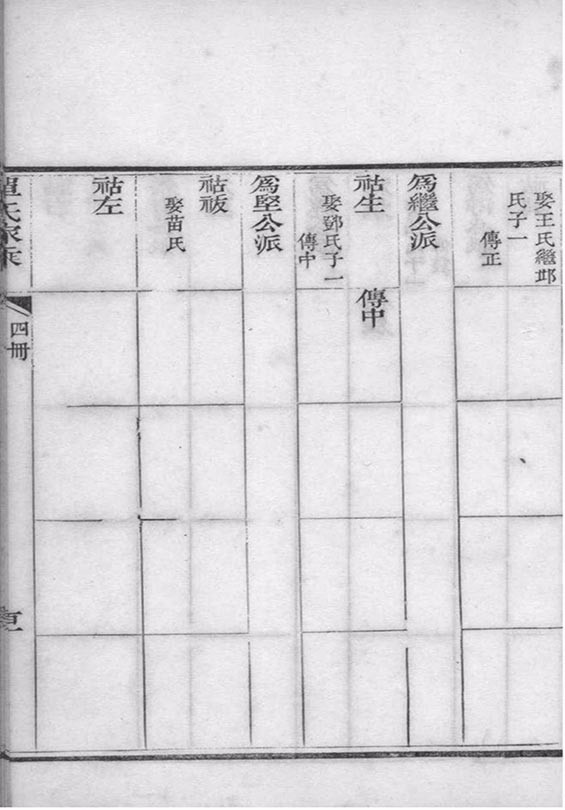 娶王氏繼邶
氏子一
傳正
為繼公派
祜生
傳中
娶鄧氏子一
傳中
為堅公派
祜祓
娶苗氏
祜左
氏家
四冊